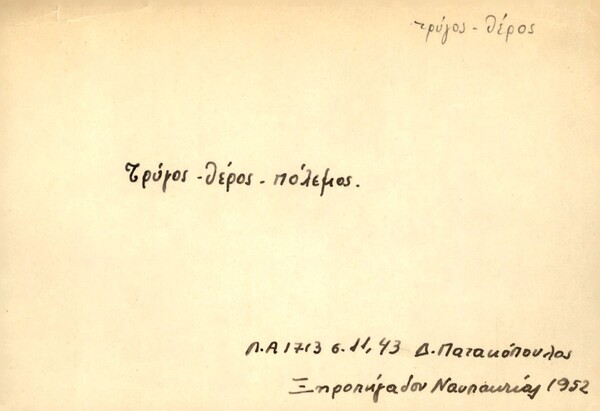 τρύγος - θέρος
Τρύγος - θέρος - πόλεμος.
Λ.Α 1713 σ. 11, 43 Δ. Πατακόπουλος
Ξηροπήγαδον Ναυπακτίας 1952